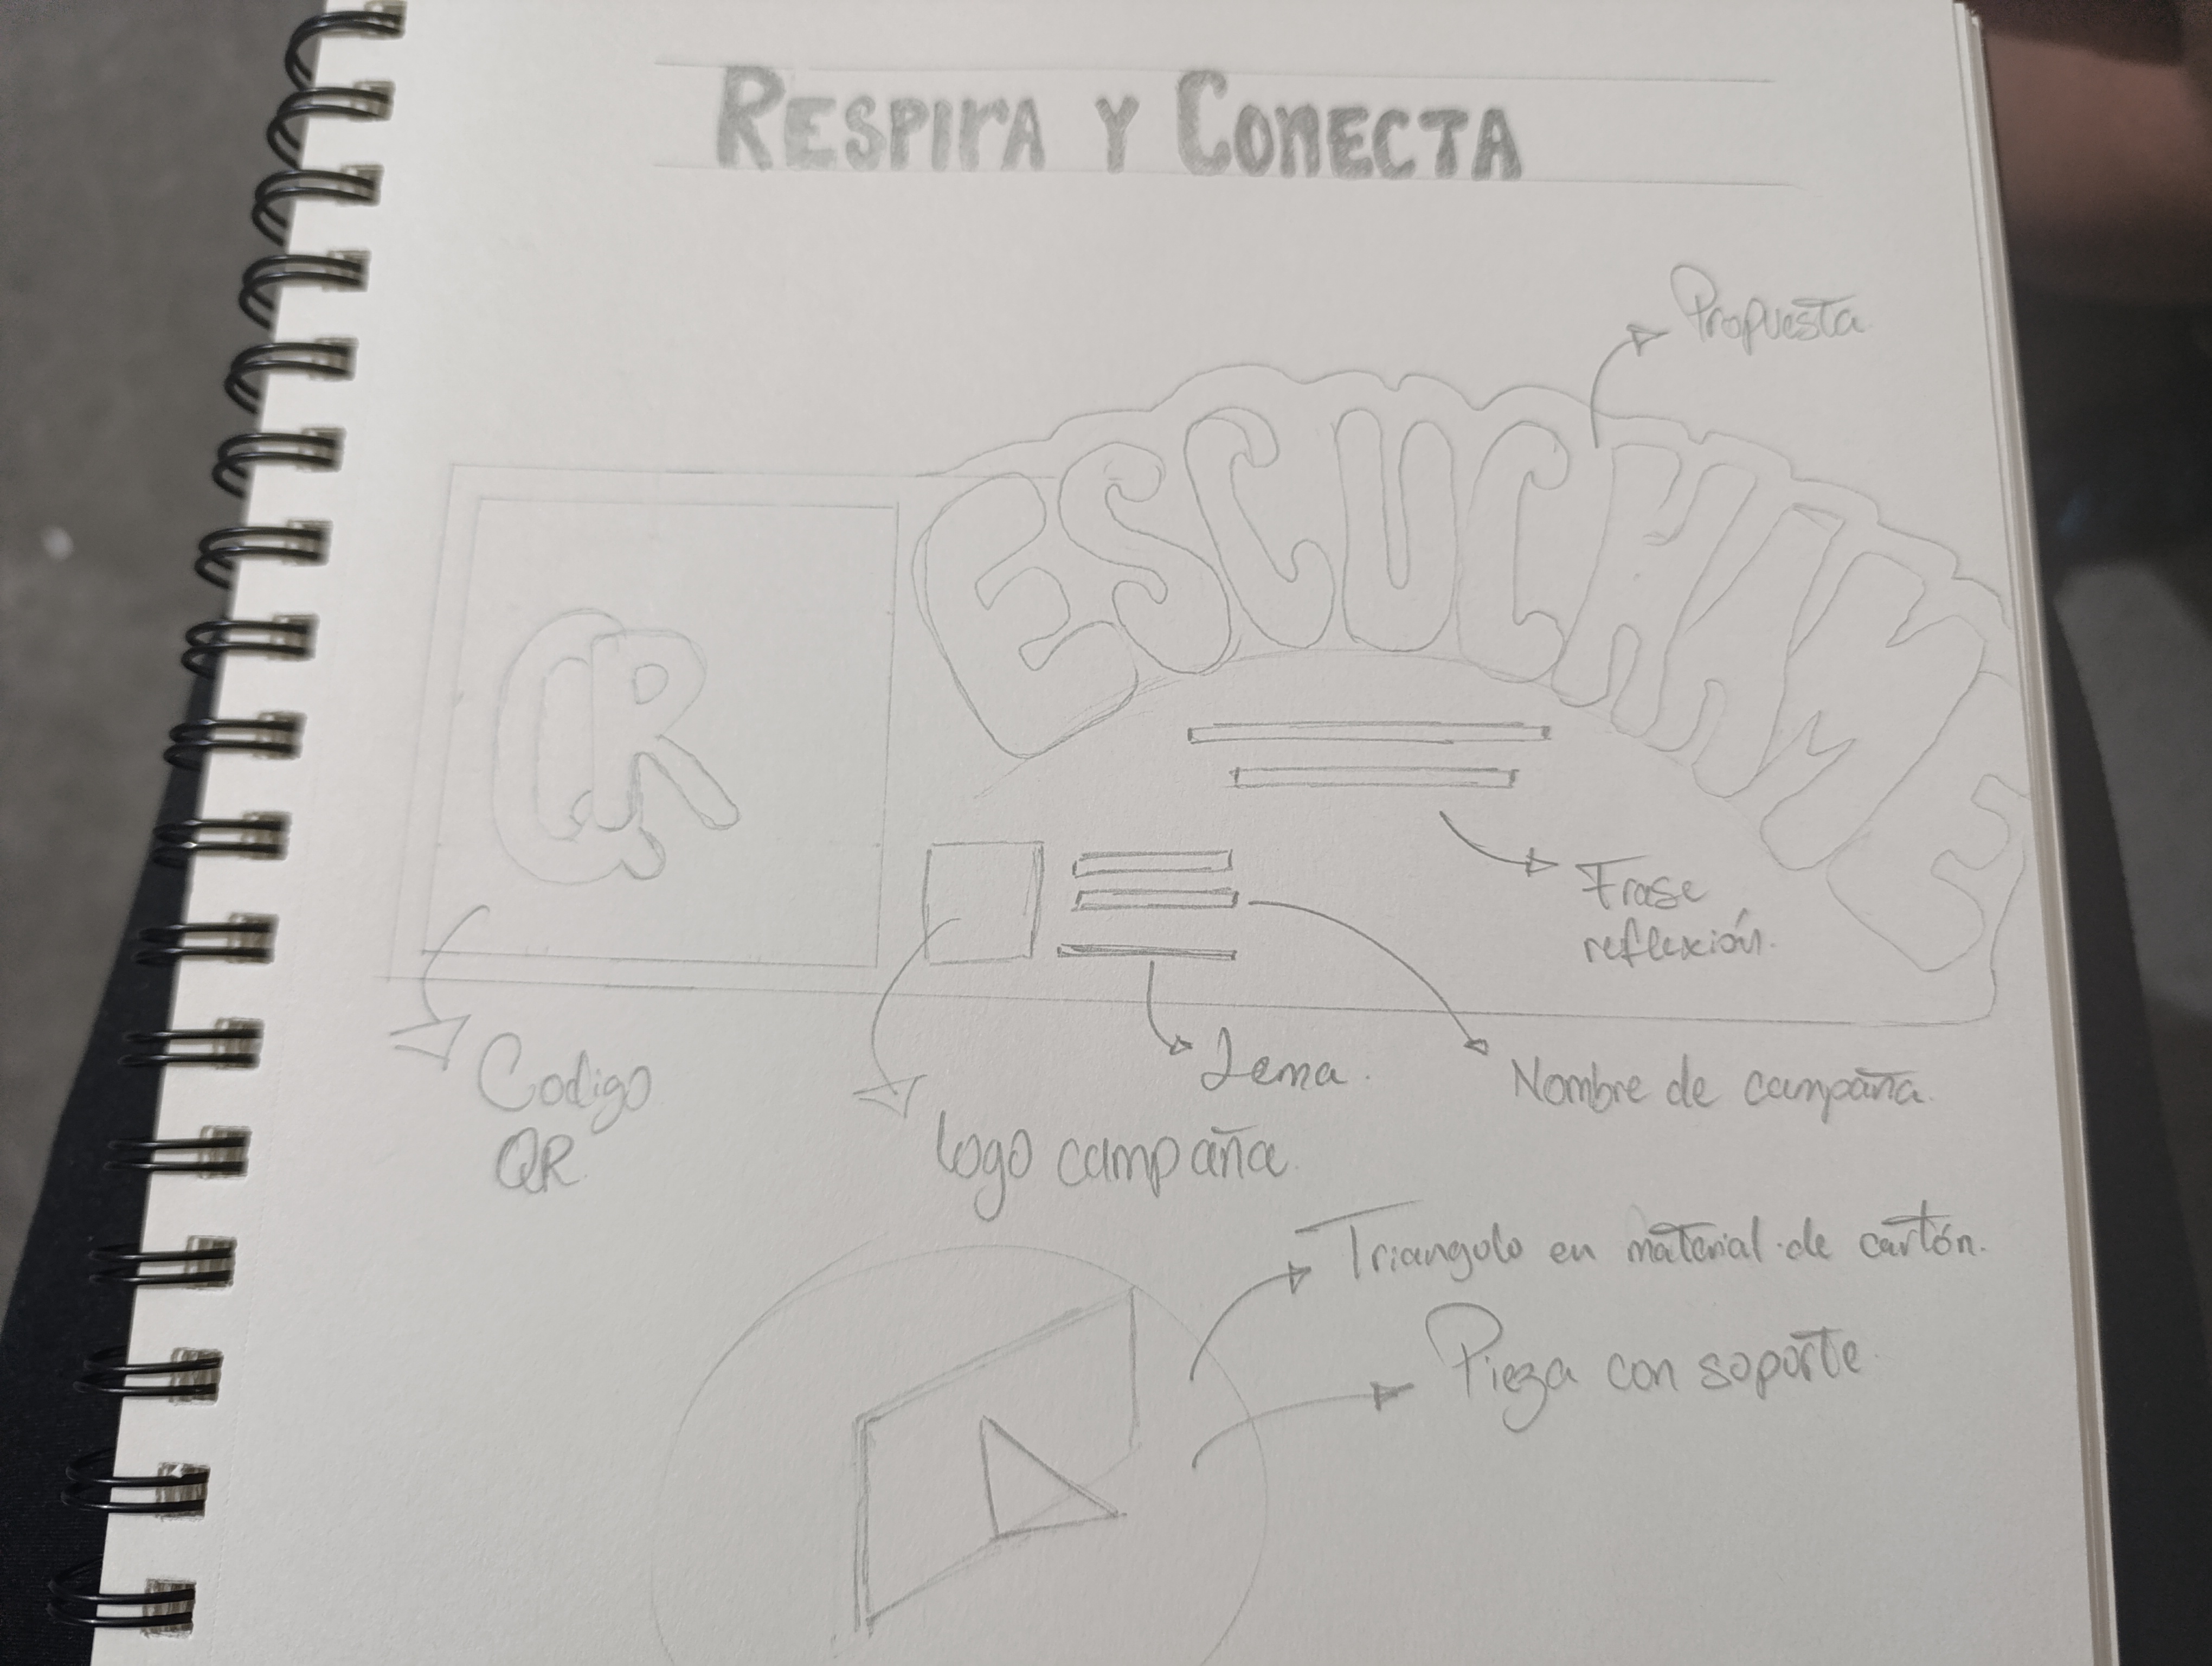 RESPIRA Y CONECTA
Propuesta
ESCUCHAME
QR
Frase
reflexión.
Codigo
QR
Lema.
Nombre de campaña.
logo campaña.
Triangulo en material de cartón.
Pieza con soporte